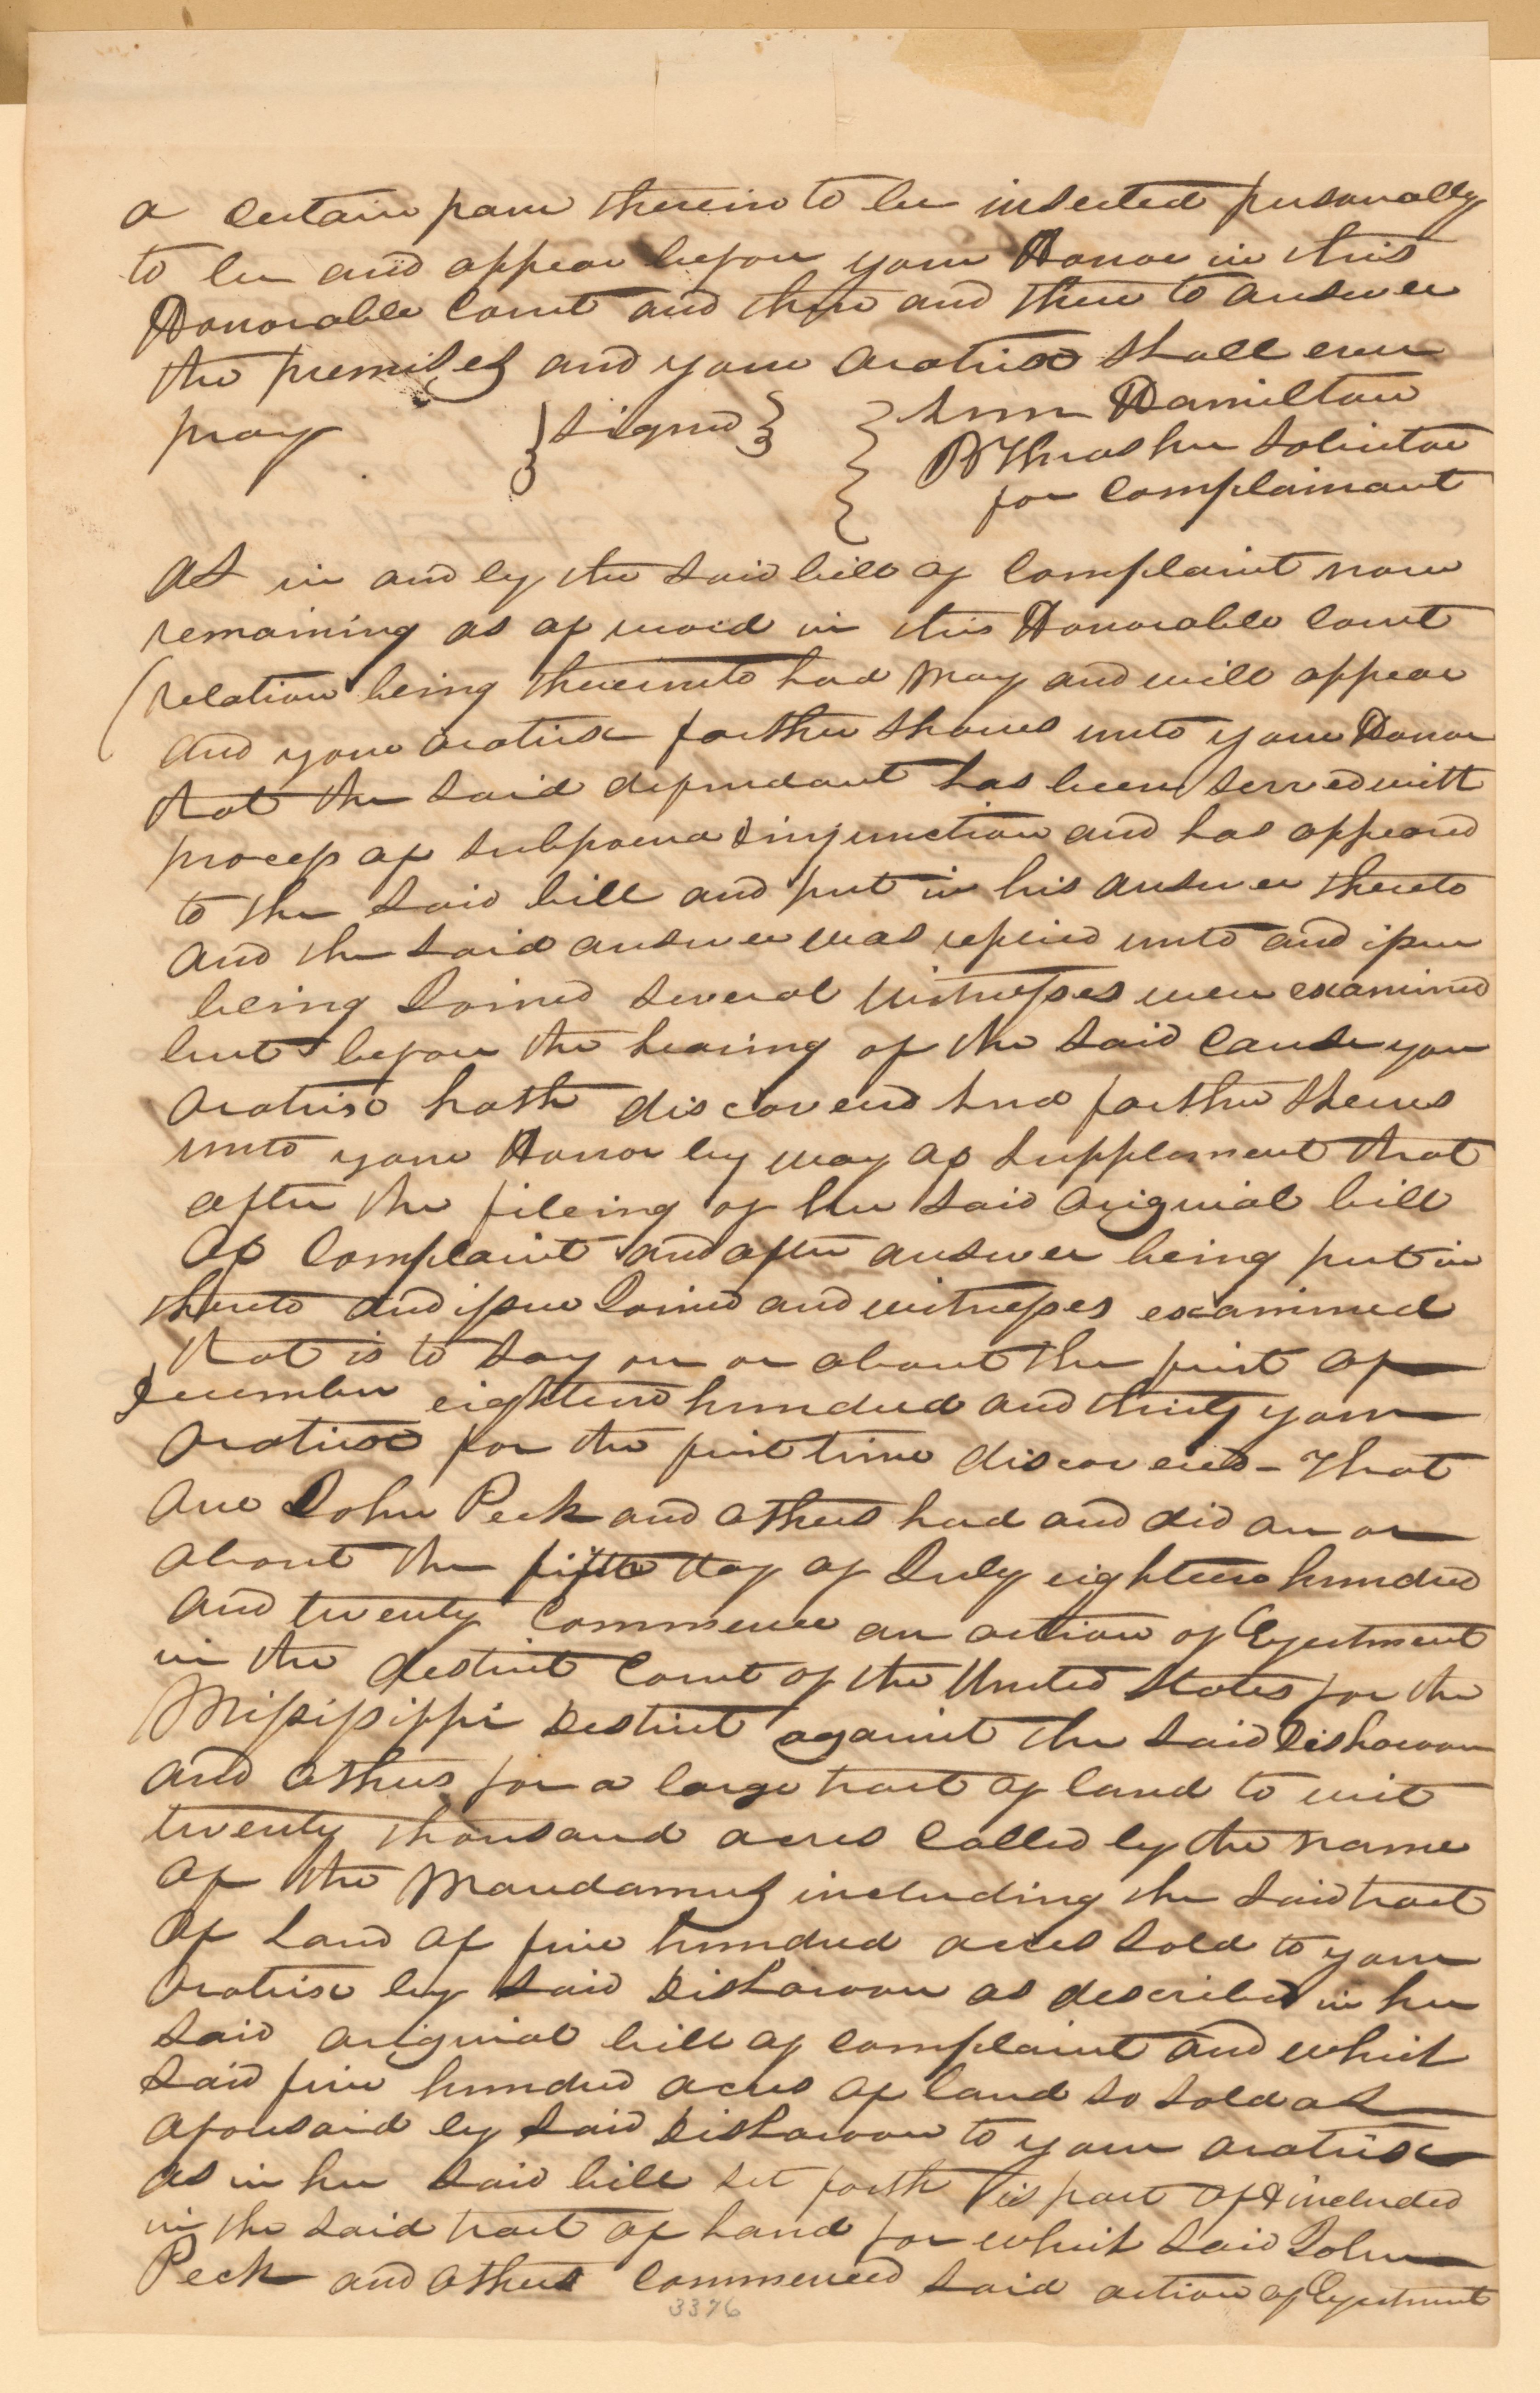 a certain pain therein to be inserted personally
to be and appear before your Honor in this
Honorable Court and then and there to answer
the premises and your oratrix shall ever
pray } signed } { Ann Hamilton
B Thrasher Solicitor
for Complainant
As in and by the said bill of Complaint now
remaining as of record in this Honorable Court
(relation being thereunto had may and will appear
and your oratrix farther shows unto your Honor
that the said defendant has been served with
process of subpoena & injunction and has appeared
to the said bill and put in his answer thereto
and the said answer was replied unto and issue
being Joined several witnesses were examined
but before the hearing of the said cause your
oratrix hath discovered and farther shews
unto your Honor by way of supplement that
after the fileing of her said original bill
of Complaint and after answer being put in
thereto and issue Joined and witnesses examined
that is to say on or about the first of
December eighteen hundred and thirty your
oratrix for the first time discovered - That
one John Peck and others had and did on or
about the fifth day of July eighteen hundred
and twenty Commence an action of Ejectment
in the destrict Court of the United States for the
Mississippi Destrict against the said Disharoon
and others for a large tract of land to wit
twenty thousand acres Called by the name
of the Mandamus including the said tract
of Land of five hundred acres sold to your
oratrix by said Disharoon as described in her
said original bill of complaint and which
said five hundred acres of land so sold as
aforesaid by said Disharoon to your oratrix
as in her said bill set forth is part of & included
in the said tract of Land for which said John
Peck and others Commenced said action of Ejectment
3376